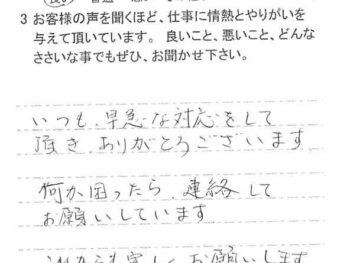 3 お客様の声を聞くほど、仕事に情熱とやりがいを
与えて頂いています。 良いこと、悪いこと、どんな
ささいな事でもぜひ、お聞かせ下さい。
いつも、早急な対応をして
頂き、ありがとうございます
何か困ったら、連絡して
お願いしています
これからも宜しくお願いします